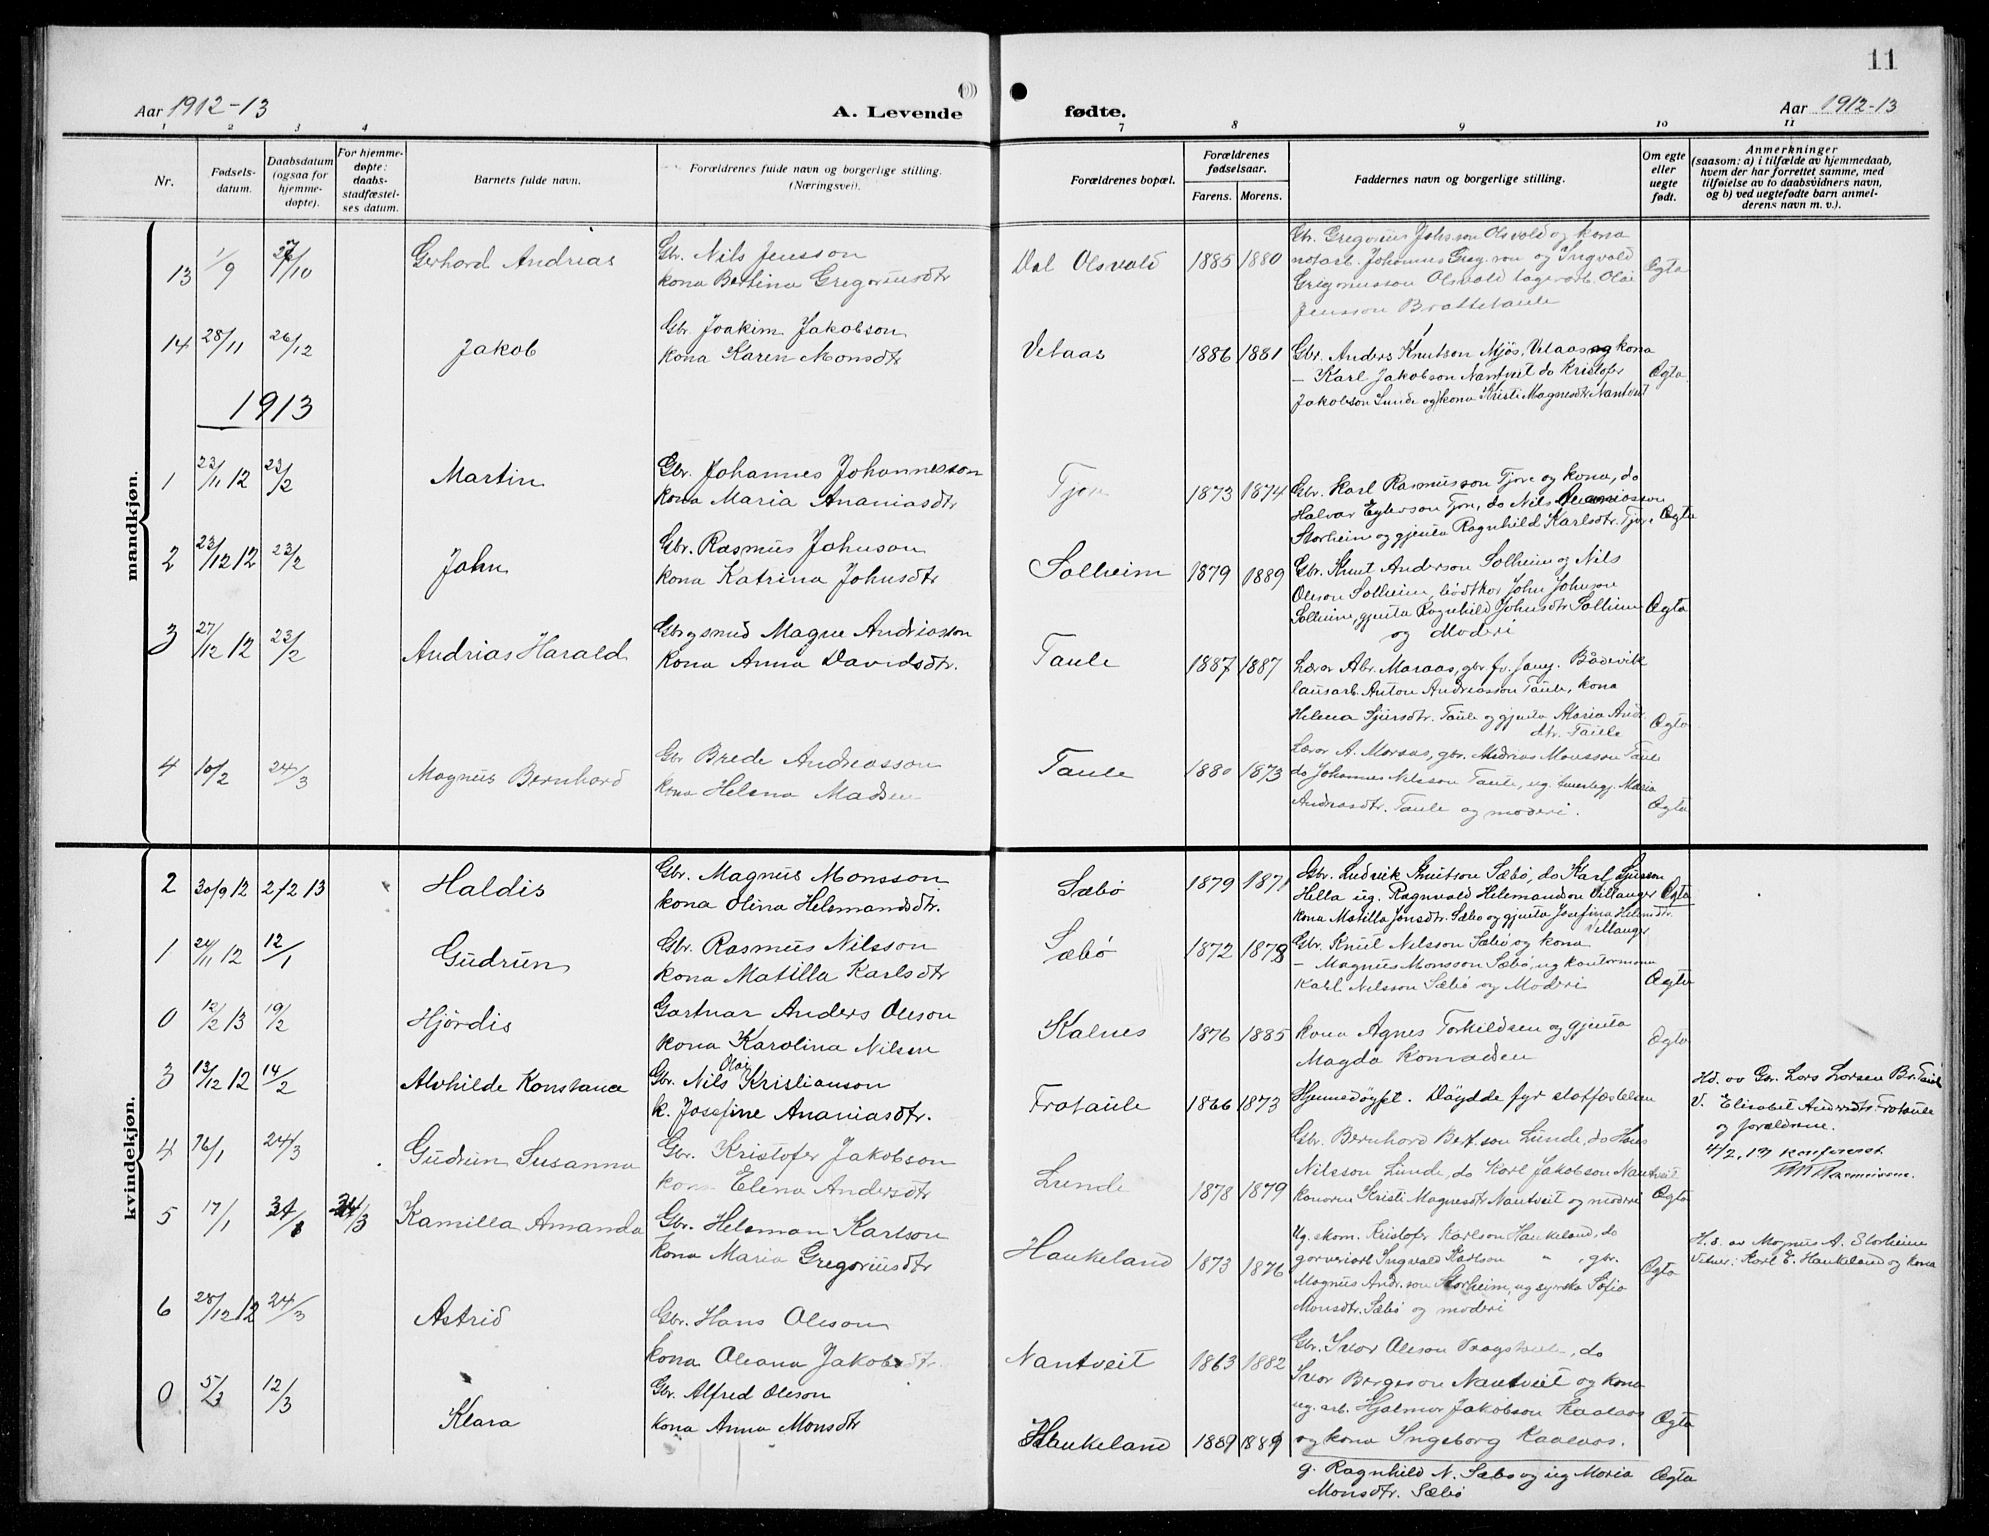 11
Aar 1912-13
A. Levende
fødte.
Aar 1912-13
1 2 3 4 7 8 9 10 11
Nr.
Fødsels-
datum.
Daabsdatum
(ogsaa for
hjemme-
døpte).
For hjemme-
døpte:
daabs-
stadfæstel-
ses datum.
Barnets fulde navn.
Forældrenes fulde navn og borgerlige stilling.
(Næringsvei).
Forældrenes bopæl.
Forældrenes
fødselsaar.
Farens. Morens.
Faddernes navn og borgerlige stilling.
Om egte
eller
uegte
født.
Anmerkninger
(saasom: a) i tilfælde av hjemmedaab,
hvem der har forrettet samme, med
tilføielse av to daabsvidners navn,
og b) ved uegtefødte barn anmel-
derens navn m. v.).
mandkjøn.
13 1/9 27/10 Gerhard Andrias
Gbr. Nils Jensson
kona Bertina Gregoriusdtr
Dal Olsvold 1885 1880
Gbr. Gregorius Johsson Olsvold og kona
notarb. Johannes Greg.son og Ingvald
Gregoriusson Olsvold lagerarb. Olai
Jensson Brattetaule
Egta
14 28/11 26/12 Jakob
Gbr. Joakim Jakobson
kona Karen Monsdtr
Vetaas 1886 1881
Gbr. Anders Knutson Mjøs, Vetaas og kona
– Karl Jakobson Nantveit do Kristofer
Jakobson Lunde og kona Kristi Magnesdtr Nantveit
Øgta
1913
1 23/11 12 23/2 Martin
Gbr. Johannes Johannesson
kona Maria Ananiasdtr
Tjore 1873 1874
Gbr. Karl Rasmusson Tjore og kona, do
Halvar Eylerson Tjore, do Nils Ananiasson
Storheim og gjenta Ragnhild Karlsdtr. Tjore
Øgta
2 23/12 12 23/2 John
Gbr. Rasmus Johnson
kona Katrina Johnsdtr
Solheim 1879 1889
Gbr. Knut Anderson Solheim og Nils
Oleson Solheim, bødtker John Johnson
Solheim, gjenta Ragnhild Johnsdtr Solheim
og Moderi
Øgta
3 27/12 12 23/2 Andrias Harald
Gbr og smed Magne Andriasson
kona Anna Davidsdtr.
Taule 1887 1887
Lærar Abr. Maraas, gbr. fv. Bådsvik
lausarb. Anton Andreasson Taule, kona
Helena Sjursdtr. Taule og gjenta Maria Andr.
dtr. Taule
Øgta
4 10/2 24/3 Magnus Bernhard
Gbr Brede Andreasson
kona Helena Madsen
Taule 1880 1873
Lærar A. Maraas, gbr. Andrias Monsson Taule
do Johannes Nilsson Taule, ug. Maria
Andreasdtr. Taule og moderi.
Øgta
kvindekjøn.
2 30/9 12 2/2 13 Haldis
Gbr. Magnus Monsson
kona Olina Helsmansdtr.
Sæbø 1879 1871
Gbr. Ludvik Knutson Sæbø, do Karl Sjurson
Hella ug. Ragnvald Helsmandson Villanger
kona Matilla Jonsdtr. Sæbø og gjenta Josefina Helmsdtr.
Villanger
Øgta
1 24/11 12 12/1 Gudrun
Gbr. Rasmus Nilsson
kona Matilla Karlsdtr
Sæbø 1872 1878
Gbr. Knut Nilsson Sæbø og kona
– Magnus Monsson Sæbø, ug kontormann
Karl Nilsson Sæbø og Moderi
Øgta
0 12/2 13 19/2 Hjørdis
Gartnar Anders Oleson
kona Karolina Nilsen
Kalnes 1876 1885
kona Agnes Torkildsen og gjenta
Magda Konradsen
Øgta
3 13/12 12 14/2 Alvhilde Konstanca
Gbr. Nils Olai Kristianson
k. Josefine Ananiasdtr.
Frotaule 1866 1873
Hjemedøypt. Døydde fyr stadfæstelsen
Hd. av Gbr. Lars Larsen Br.Taule
V. Elisabet Andrsdtr. Frotaule
og foreldrene.
4/2, 13 konfereret
Rasmussen.
4 16/1 24/3 Gudrun Susanna
Gbr. Kristofer Jakobson
kona Elena Andersdtr
Lunde 1878 1879
Gbr. Bernhard Bert.son Lunde, do Hans
Nilsson Lunde, do Karl Jakobson Nantveit
konorne Kristi Magnesdtr Nantveit og moderi
Øgta
5 17/1 24/3 Kamilla Amanda
Gbr. Helsman Karlson
kona Maria Gregoriusdtr
Haukeland 1873 1876
Ug. skom. Kristofer Karlson Haukeland, do
Ingvald Karlson " gbr.
Magnus Andr.son Storheim, ug syerska Sofia
Monsdtr. Sæbø og moderi
Øgta
H.d. av Magnus A. Storheim
Vitner: Karl E. Haukeland og kona
6 28/12 12 24/3 Astrid
Gbr. Hans Oleson
kona Oleana Jakobsdtr.
Nantveit 1863 1882
Gbr. Ivar Oleson Dragstaule, do
Ivar Bergeson Nantveit og kona
ug. arb. Hjalmar Jakobson Kaalaas
og kona Ingeborg Kaalaas.
Øgta
0 5/3 12/3 Klara
Gbr. Alfred Oleson
kona Anna Monsdtr
Haukeland 1889 1889
g. Ragnhild N. Sæbø og ug Maria
Monsdtr. Sæbø
Øgta